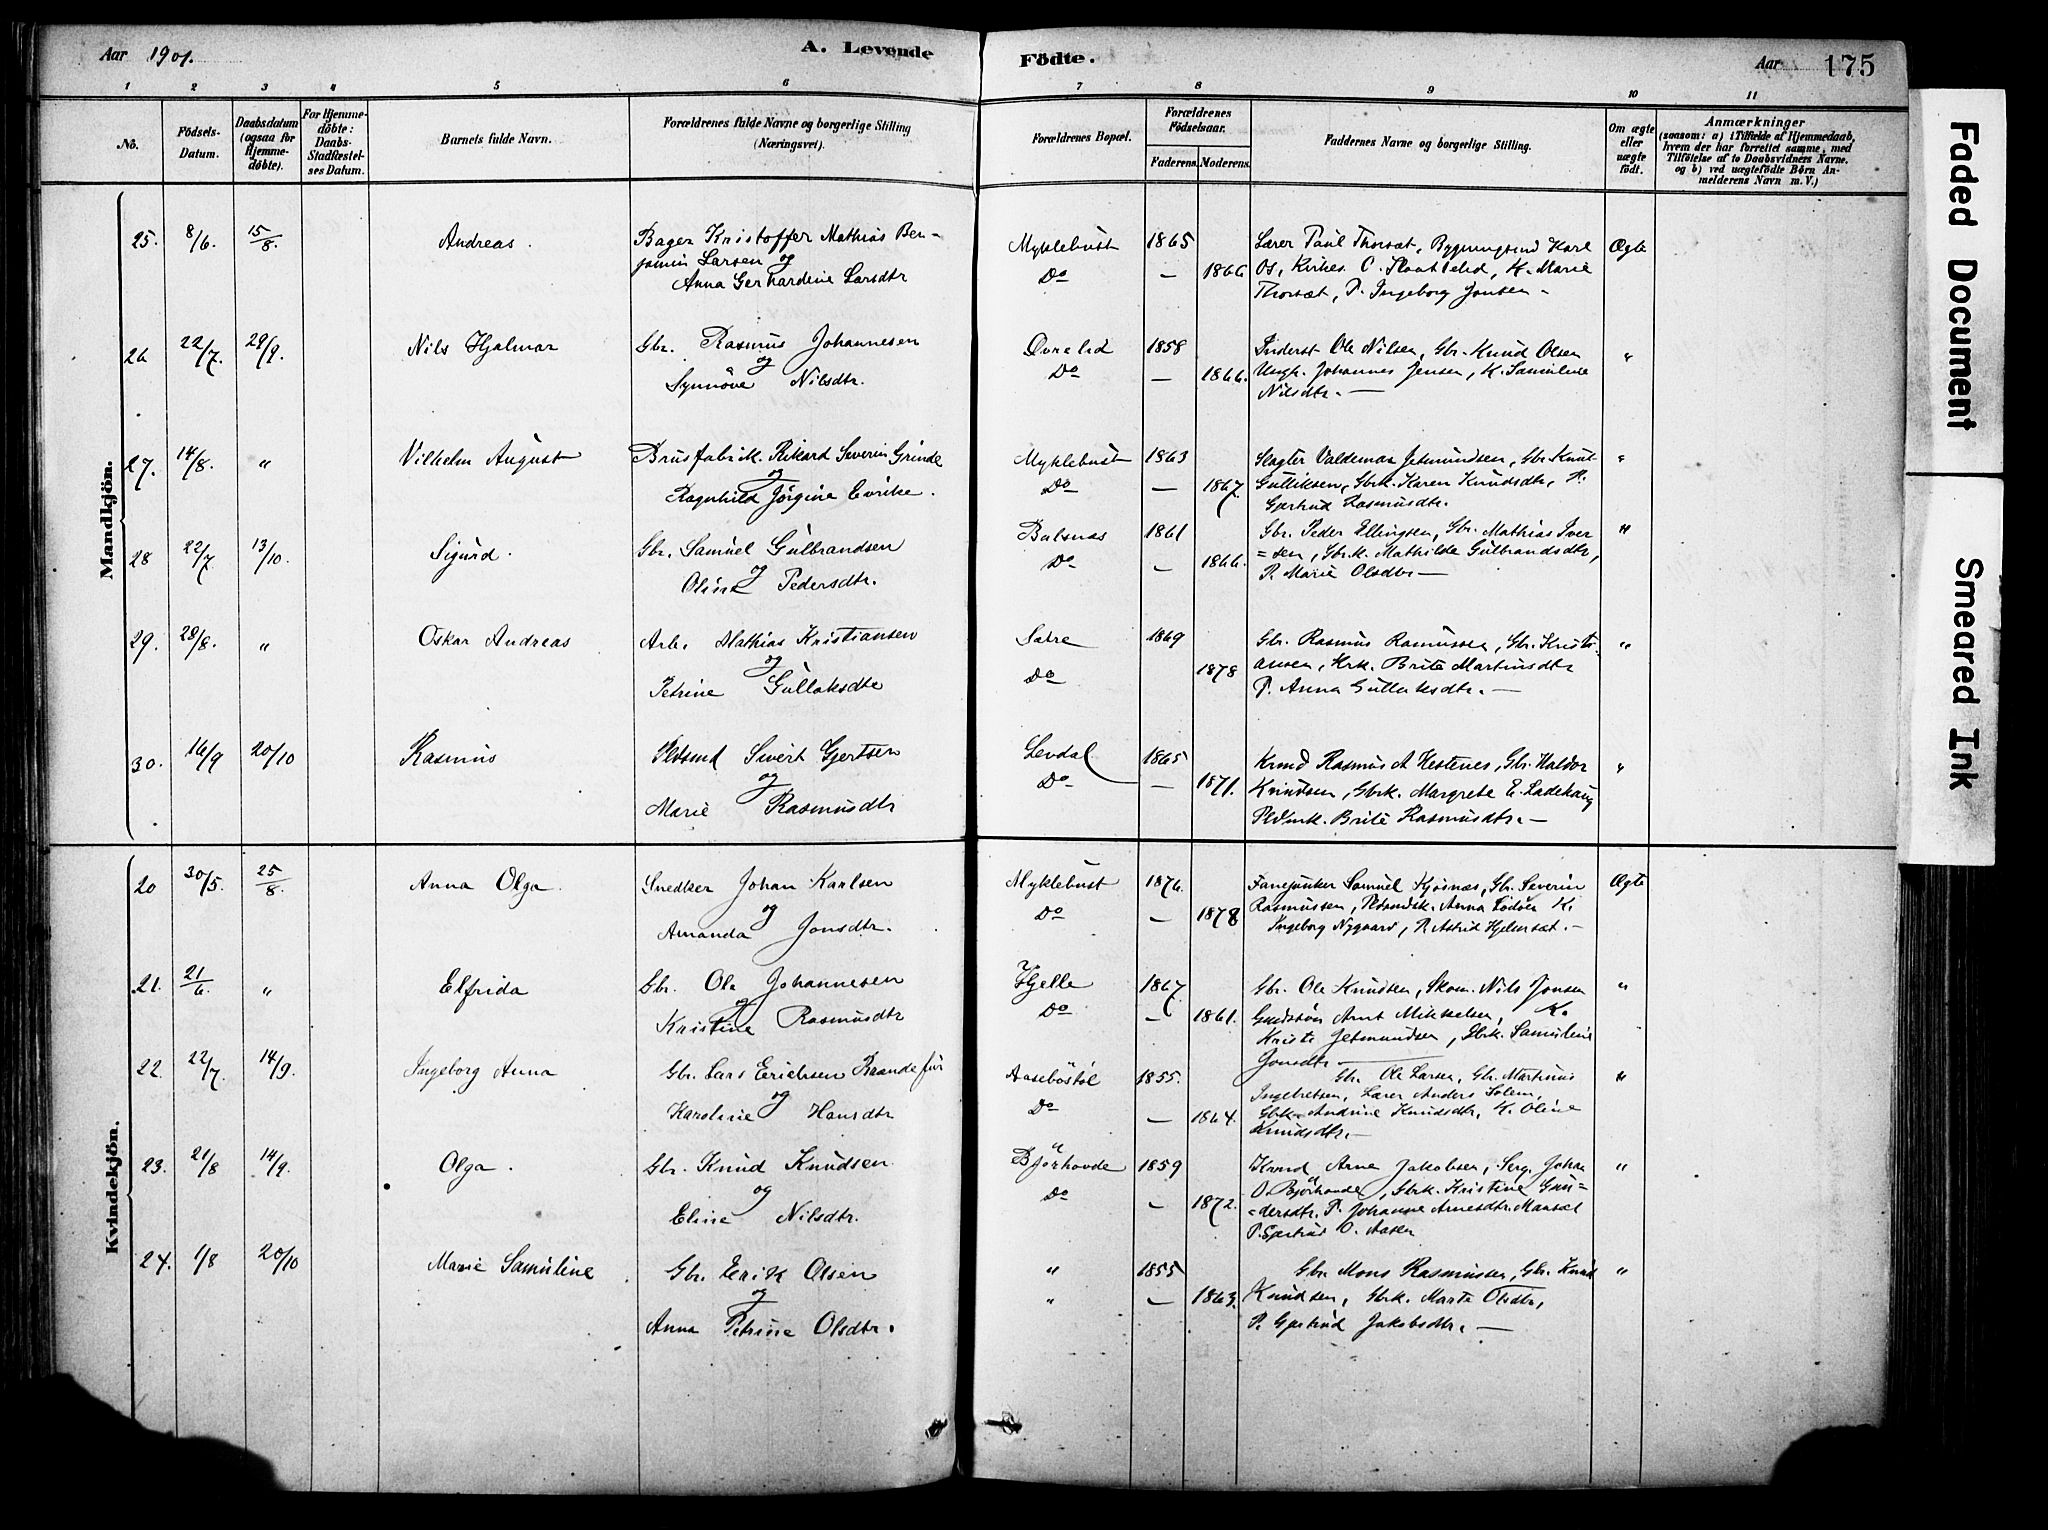 Aar 1901.
A. Levende Födte.
Aar 175
1 2 3 4 5 6 7 8 9 10 11
No.
Födsels-Datum.
Daabsdatum (ogsaa for Hjemme-döbte).
For Hjemme-döbte: Daabs-Stadfæstel-ses Datum.
Barnets fulde Navn.
Forældrenes fulde Navne og borgerlige Stilling (Næringsvei).
Forældrenes Bopæl.
Forældrenes Födselsaar.
Faderens. Moderens.
Faddernes Navne og borgerlige Stilling.
Om ægte eller uægte födt.
Anmærkninger
(saasom: a) i Tilfælde af Hjemmedaab,
hvem der har forrettet samme, med
Tilföielse af to Daabsvidners Navne.
og b) ved uægtefödte Börn An-
melderens Navn m.V.)
Mandkjön.
25. 8/6. 15/8. Andreas. Bager Kristoffer Mathias Ben- Myklebust 1865 Lærer Paul Thorsæt, Bygningsmd Karl Ægte
jamin Larsen og Do — 1866 Os, Kirkes. C. , K. Marie
Anna Gerhardine Larsdtr Thorsæt, P. Ingeborg Jonsen —
26 22/7. 29/9. Nils Hjalmar Gbr. Rasmus Johannesen Øvrelid 1858 Inderst Ole Nilsen, Gbr. Knud Olsen "
og Do — 1866. Ungk. Johannes Jensen, K. Samuline
Synnöve Nilsdtr. Nilsdtr. —
27. 14/8. " Vilhelm August Brusfabrik. Rikard Severin Grinde Myklebust 1863 Slagter Valdemar Jetmundsen, Gbr. Knut "
og Do — 1867. Gulliksen, Gbrk. Karen Knudsdtr, P.
Ragnhild Jørgine Evrike. Gjertrud Rasmusdtr.
28 22/7 13/10. Sigurd. Gbr. Samuel Gulbrandsen Balsnæs 1861 Gbr. Peder Ellingsen, Gbr. Mathias Iver "
og Do — 1866. =sen, Gbrk. Mathilde Gulbrandsdtr,
Oline Pedersdtr. P. Marie Olsdtr —
29. 28/8. " Oskar Andreas Arb. Mathias Kristiansen Sætre 1869 Gbr. Rasmus Rasmussen, Gbr. Kristi- "
og Do 1878 ansen, Krk. Brite Martinusdtr
Petrine Gullaksdtr P. Anna Gullaksdtr. —
30. 16/9 20/10 Rasmus Pldsmd Sivert Gjertsen Levdal 1865 Krmd Rasmus A Hestenes, Gbr. Haldor "
og Do — 1871. Knudsen, Gbrk. Margrete E. Ladehaug
Marie Rasmusdtr Pldsmk. Brite Rasmusdtr. —
Kvindekjön.
20 30/5. 25/8. Anna Olga. Snedker Johan Karlsen Myklebust 1876. Fanejunker Samuel Kjøsnæs, Gbr. Severin Ægte
og Do — 1878 Rasmussen, Pldsmdsk. Anna Lodöen K.
Amanda Jonsdtr. Ingeborg Nygaard, P. Astrid Hjelmsæt. —
21. 21/6. " Elfrida Gbr. Ole Johannesen Hjelle 1867 Gbr. Ole Knudsen, Skom. Nils Jonsen "
og Do — 1861. Gmdssön Arnt Mikkelsen, K.
Kristine Rasmusdtr Kristi Jetmundsen, Gbrk. Samuline
Jonsdtr —
22. 22/7. 14/9. Ingeborg Anna Gbr. Lars Erichsen Raandefur Aaseböstöl 1855. Gbr. Ole Larsen, Gbr. Martinus "
og Do — 1864. Ingebretsen, Lærer Anders Solem,
Karoline Hansdtr Gbrk. Andrine Knudsdtr, K. Oline
Knudsdtr. —
23. 21/8 14/9. Olga. Gbr. Knud Knudsen Bjørhovde 1859 Krmd Arne Jakobsen, Serg. Johan "
og Do — 1872. O. Bjørhovde, Gbrk. Kristine Gun=
Eline Nilsdtr. =dersdtr. P. Johanne Arnesdtr.
P. Gjertrud O. Aasen
24. 1/8 20/10 Marie Samuline Gbr. Erik Olsen " 1855 Gbr Mons Rasmussen, Gbr. Knud "
og " — 1863. Knudsen, Gbrk. Marte Olsdtr,
Anna Petrine Olsdtr. P. Gjertrud Jakobsdtr. —
Faded Document
Smeared Ink